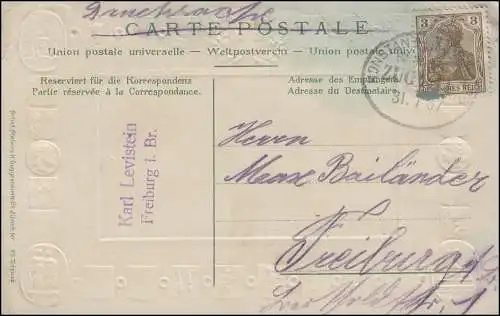 Drucksache
CARTE POSTALE
Union postale universelle — Weltpostverein — Union postale univ
Reserviert für die Korrespondenz
Partie réservée à la Correspondance.
Adresse des Empfängers
Adresse du Destinataire.
3 3
DEUTSCHES REICH
KONSTANZ
31.1.07
Karl Levistein
Freiburg i. Br.
Herrn
Max Bailänder
Freiburg i/Br.